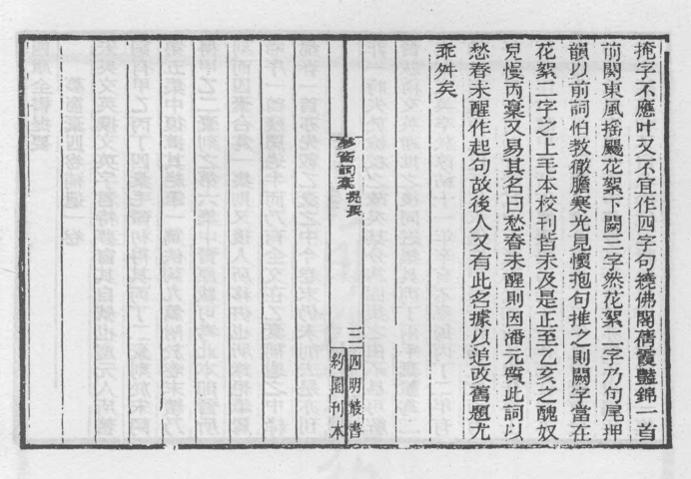 掩字不應叶又不宜作四字句繞佛閣蒨霞豔錦一首
前闋東風搖颺花絮下闕三字然花絮二字乃句尾押
韻以前詞怕教徹膽寒光見懷抱句推之則闕字當在
花絮二字之上毛本校刊皆未及是正至乙亥之醜奴
兒慢丙稾又易其名曰愁春未醒則因潘元質此詞以
愁春未醒作起句故後人又有此名據以追改舊題尤
乖舛矣
夢窗詞稾 提要
三
四明叢書
約園刊本